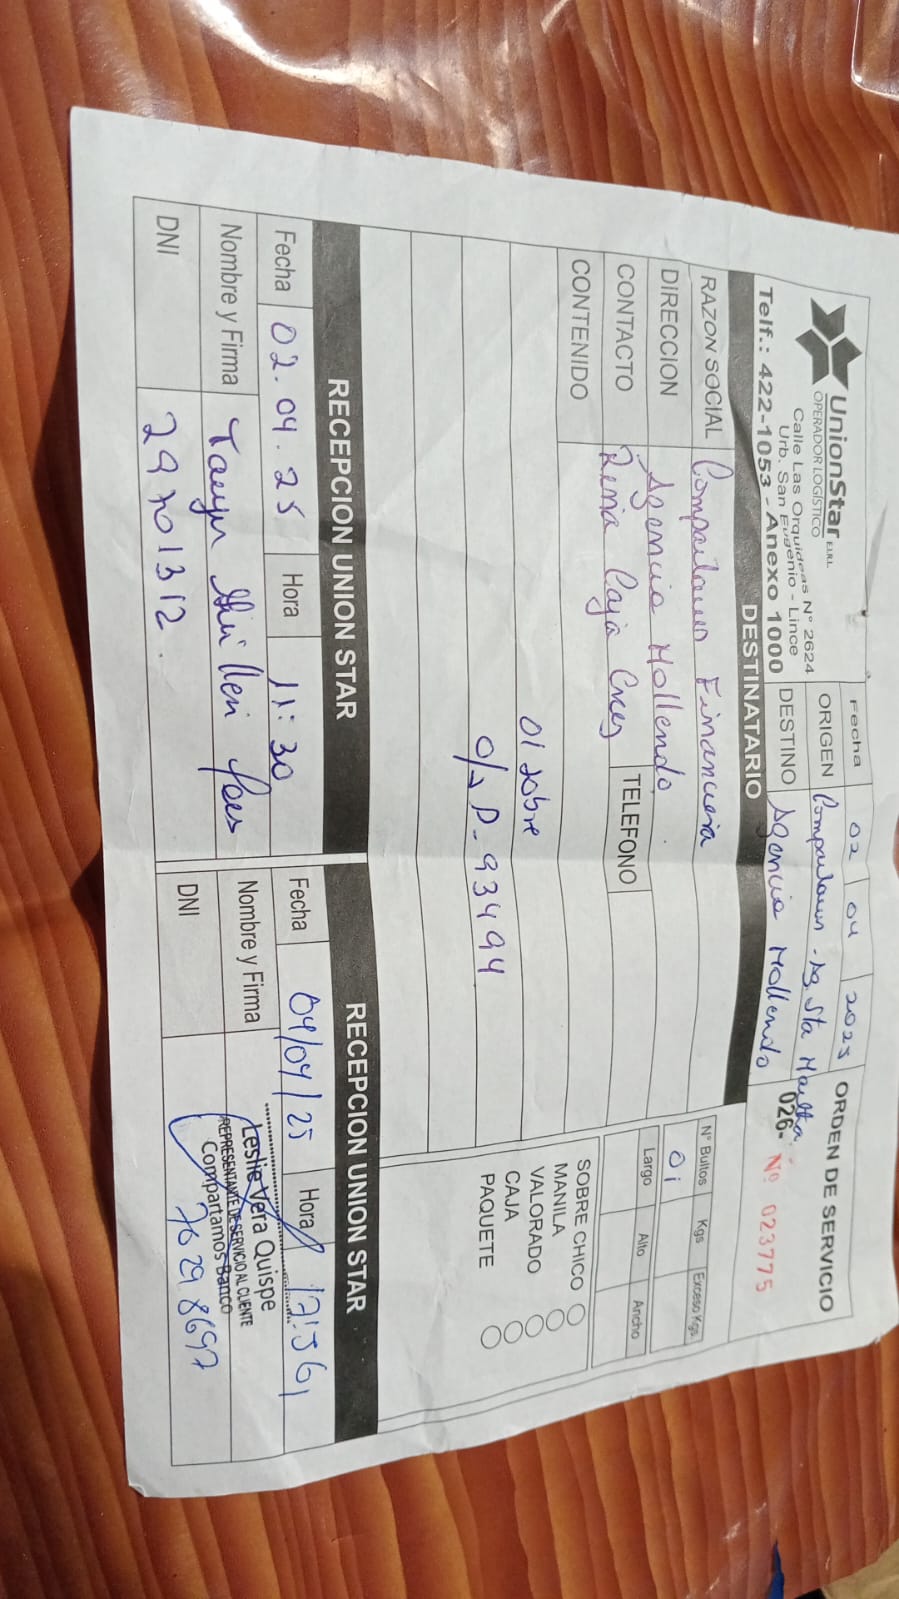 UnionStar E.I.R.L.
OPERADOR LOGÍSTICO
Calle Las Orquideas N° 2624
Urb. San Eugenio - Lince
Telf.: 422-1053 - Anexo 1000
Fecha 02 04 2025
ORIGEN Compartamos - Ag. Sta Martha
DESTINO Agencia Mollendo
ORDEN DE SERVICIO
026- Nº 023775
DESTINATARIO
RAZON SOCIAL Compartamos Financiera
DIRECCION Agencia Mollendo
CONTACTO Caja
TELEFONO
CONTENIDO
01 sobre
D-93494
N° Bultos Kgs Exceso Kgs.
01
Largo Alto Ancho
SOBRE CHICO
MANILA
VALORADO
CAJA
PAQUETE
RECEPCION UNION STAR
Fecha 02.04.25 Hora 11:30
Nombre y Firma
DNI 29701312
RECEPCION UNION STAR
Fecha 04/04/25 Hora
Nombre y Firma
Leslie Vera Quispe
REPRESENTANTE DE SERVICIO AL CLIENTE
Compartamos Banco
DNI 76298697